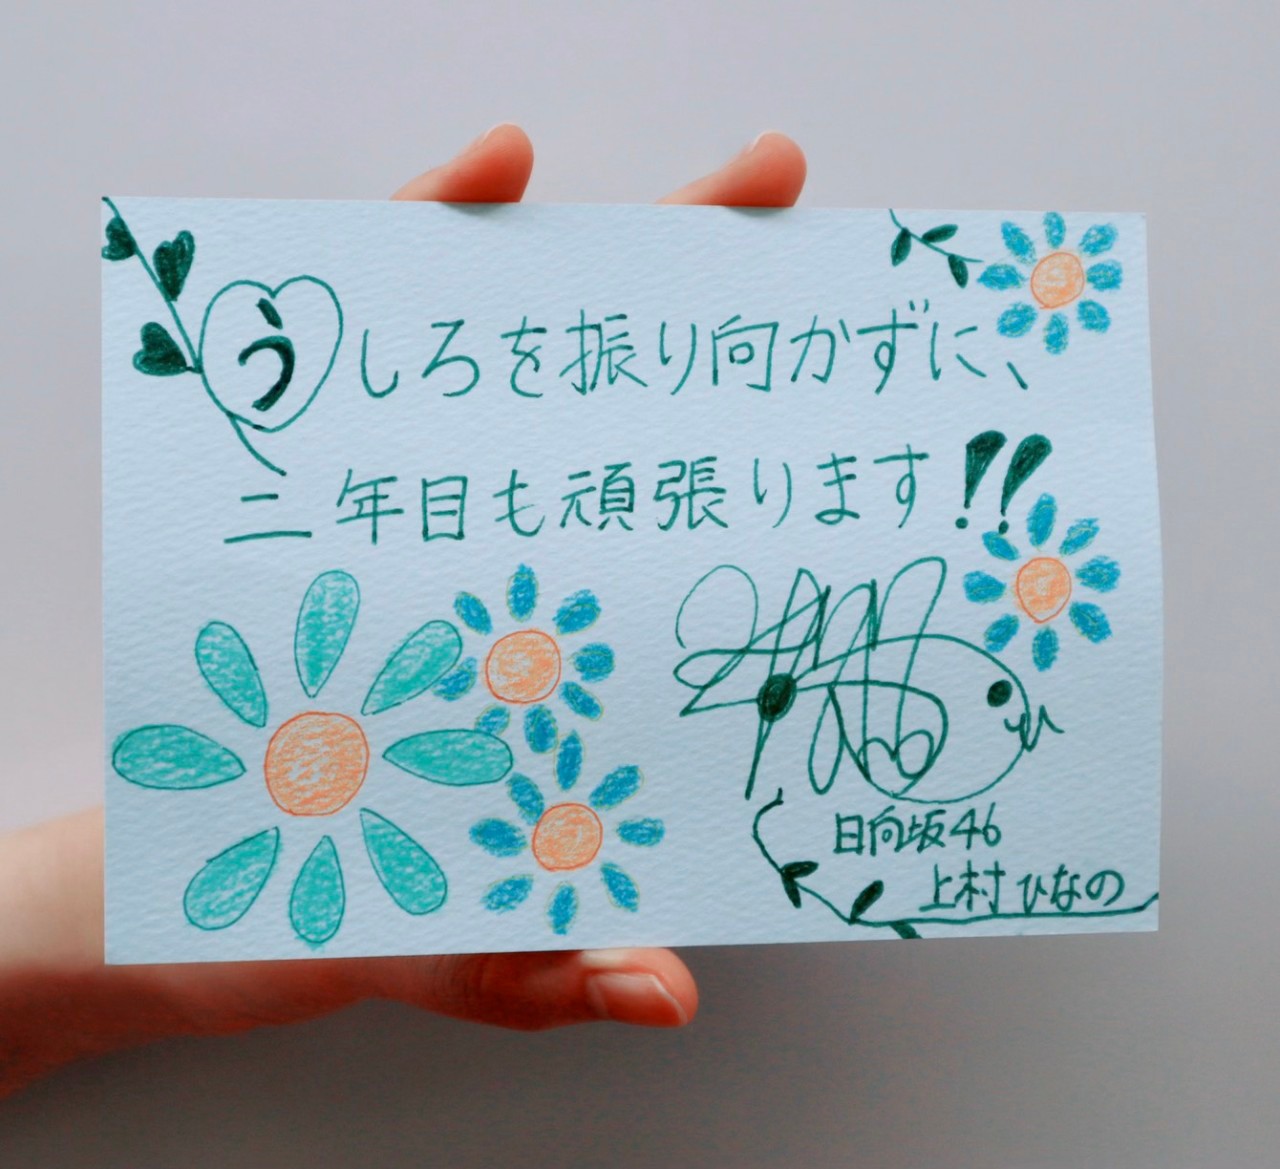 うしろを振り向かずに、
二年目も頑張ります!!
日向坂46
上村ひなの